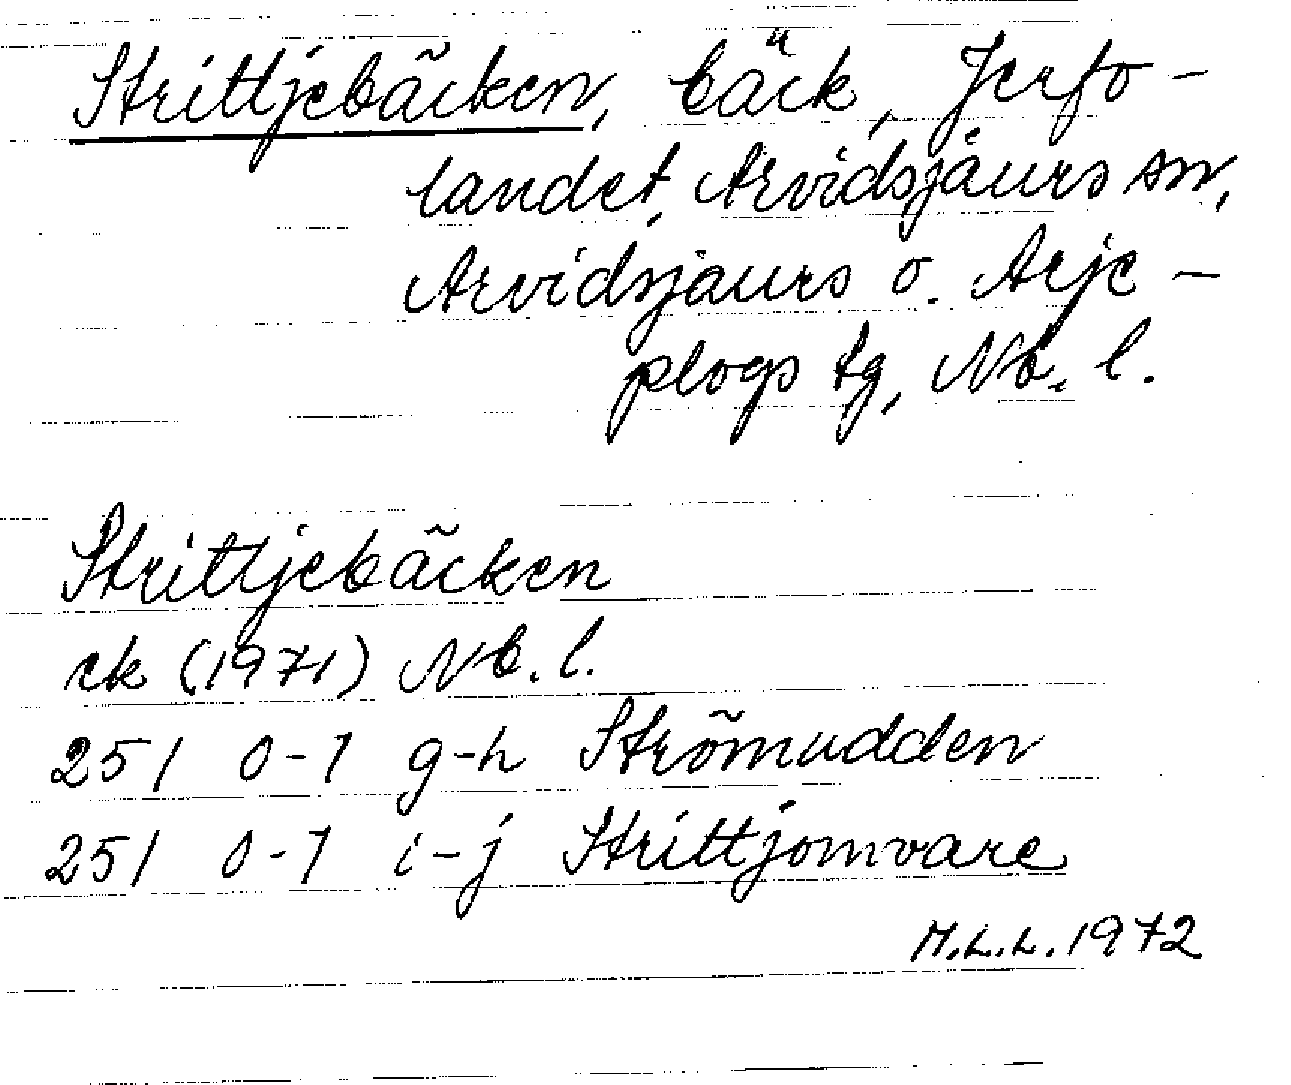 Strittjebäcken, bäck, Jerfo-
landet, Arvidsjaurs sn,
Arvidsjaurs o. Arje-
plogs tg, Nb. l.
Strittjebäcken
ek (1971) Nb. l.
25 I 0-1 g-h Strömudden
25 I 0-1 i-j Strittjomvare
M.L.L. 1972